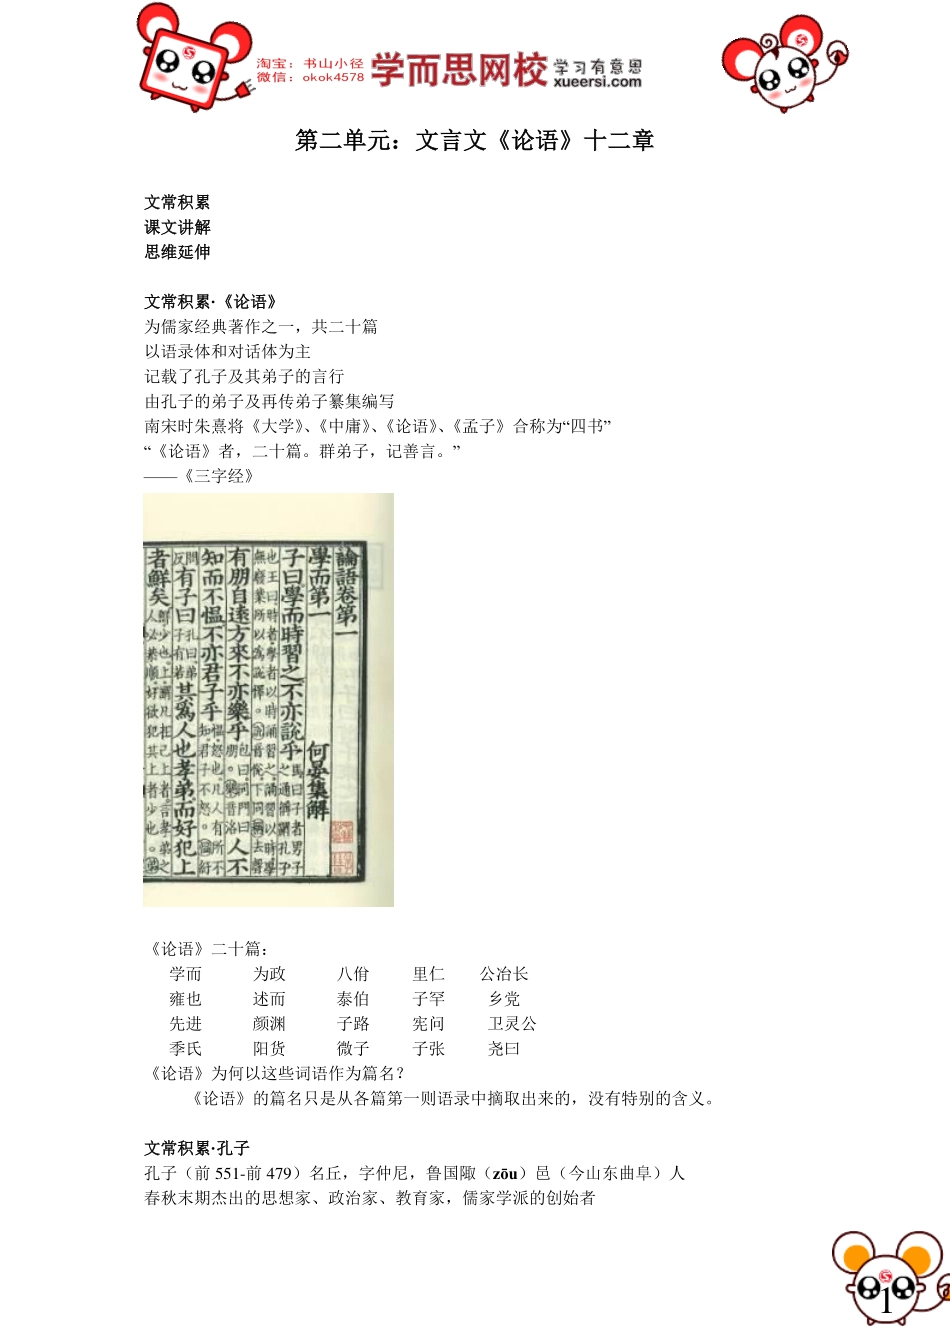 淘宝：书山小径
微信：okok4578
学而思网校
学习有意思
xueersi.com
第二单元：文言文《论语》十二章
文常积累
课文讲解
思维延伸
文常积累·《论语》
为儒家经典著作之一，共二十篇
以语录体和对话体为主
记载了孔子及其弟子的言行
由孔子的弟子及再传弟子纂集编写
南宋时朱熹将《大学》、《中庸》、《论语》、《孟子》合称为“四书”
“《论语》者，二十篇。群弟子，记善言。”
——《三字经》
論語卷第一
學而第一 何晏集解
子曰學而時習之不亦説乎
有朋自遠方來不亦樂乎
人不
知而不慍不亦君子乎
有子曰
其爲人也孝弟而好犯上
者鮮矣
《论语》二十篇：
学而 为政 八佾 里仁 公冶长
雍也 述而 泰伯 子罕 乡党
先进 颜渊 子路 宪问 卫灵公
季氏 阳货 微子 子张 尧曰
《论语》为何以这些词语作为篇名？
《论语》的篇名只是从各篇第一则语录中摘取出来的，没有特别的含义。
文常积累·孔子
孔子（前 551-前 479）名丘，字仲尼，鲁国陬（zōu）邑（今山东曲阜）人
春秋末期杰出的思想家、政治家、教育家，儒家学派的创始者
1